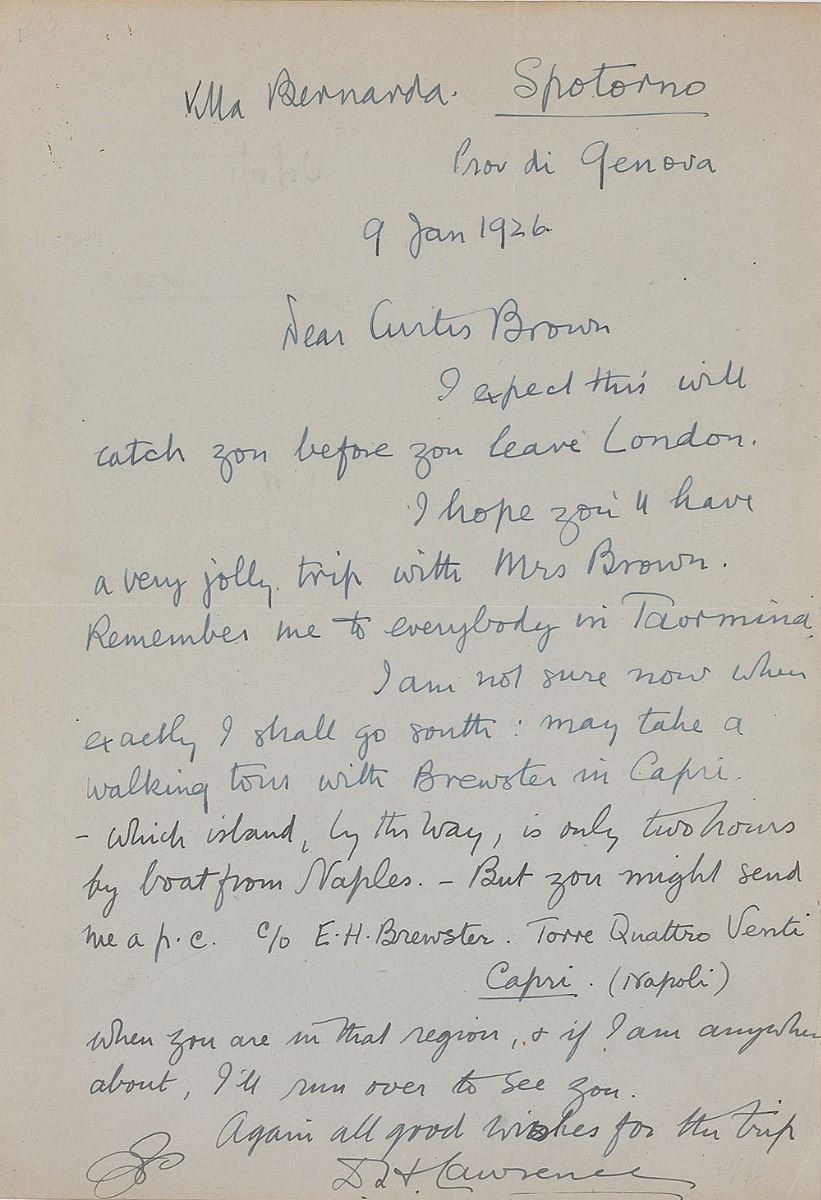 Villa Bernarda. Spotorno
Prov di Genova
9 Jan 1926
Dear Curtis Brown
I expect this will
catch you before you leave London.
I hope you'll have
a very jolly trip with Mrs Brown.
Remember me to everybody in Taormina.
I am not sure now when
exactly I shall go south: may take a
walking tour with Brewster in Capri.
- which island, by the way, is only two hours
by boat from Naples. - But you might send
me a p.c. c/o E.H. Brewster. Torre Quattro Venti
Capri. (Napoli)
when you are in that region, & if I am anywhere
about, I'll run over to see you.
Again all good wishes for the trip
D.H. Lawrence